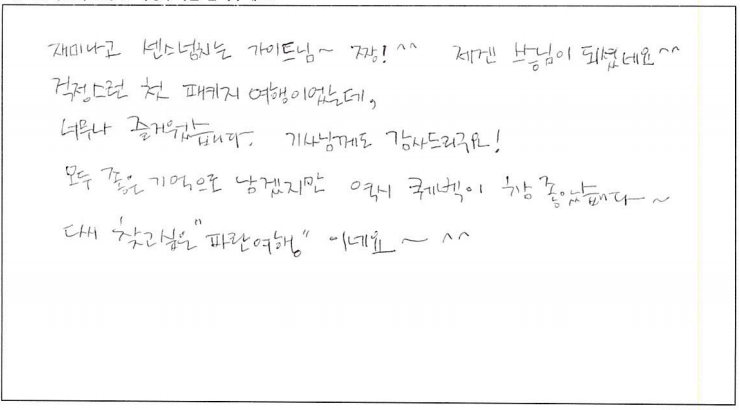 재미나고 센스넘치는 가이드님~ 짱! ^^ 제겐 되셨네요^^
걱정스런 첫 패키지 여행이었는데,
너무나 즐거웠습니다. 기사님께도 감사드리구요!
모두 좋은 기억으로 남겠지만 역시 퀘벡이 참 좋았습니다~
다시 찾고싶은 "파란여행" 이네요~ ^^